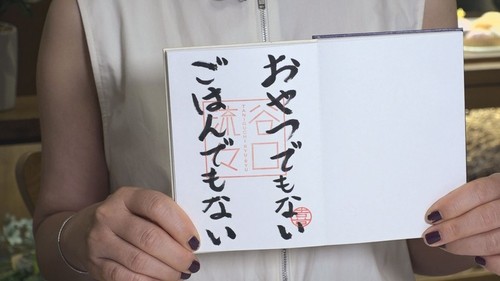 おやつでもない
ごはんでもない
谷口
流々